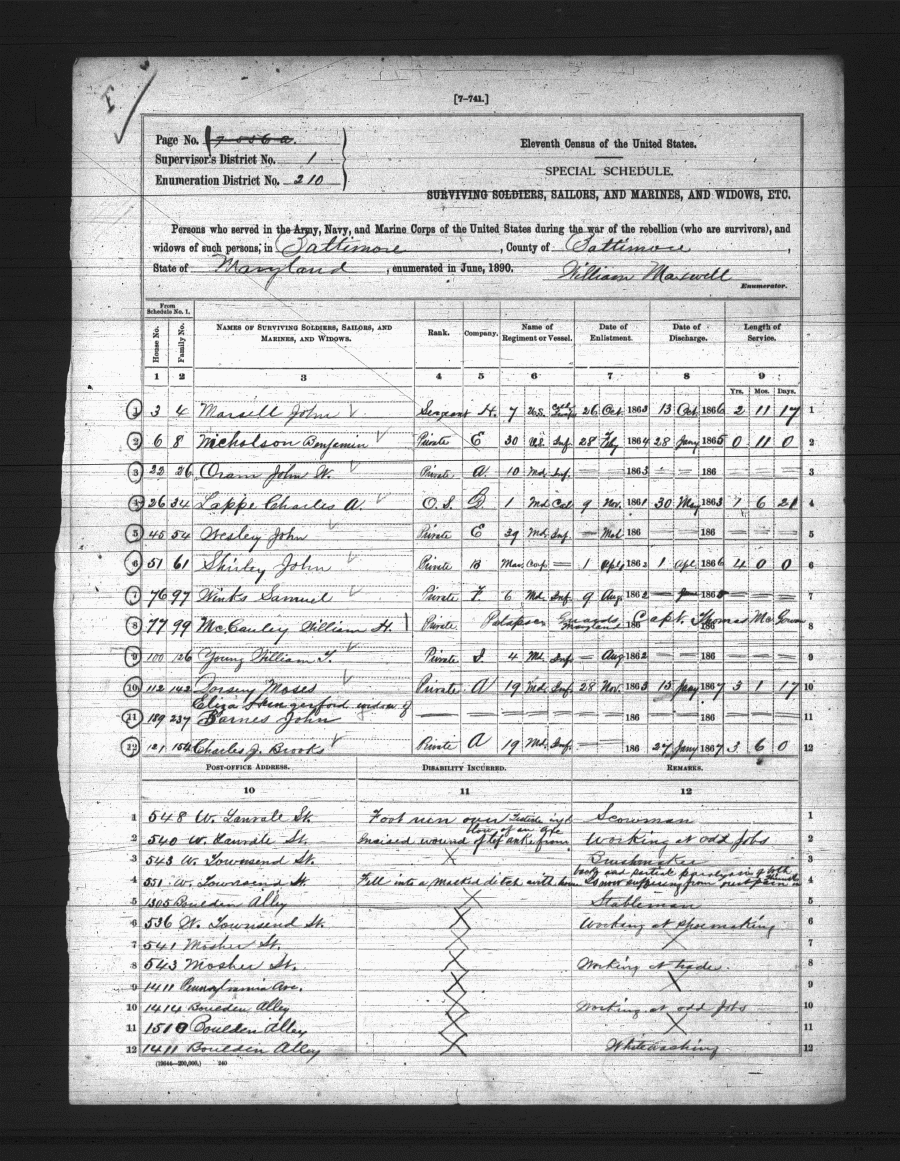 [7-741.]
Page No.
Supervisor's District No. 1
Enumeration District No. 210
Eleventh Census of the United States.
SPECIAL SCHEDULE.
SURVIVING SOLDIERS, SAILORS, AND MARINES, AND WIDOWS, ETC.
Persons who served in the Army, Navy, and Marine Corps of the United States during the war of the rebellion (who are survivors), and
widows of such persons, in Baltimore, County of Baltimore,
State of Maryland, enumerated in June, 1890. William Maxwell
Enumerator.
From Schedule No. 1.
House No. Family No. NAMES OF SURVIVING SOLDIERS, SAILORS, AND MARINES, AND WIDOWS. Rank. Company. Name of Regiment or Vessel. Date of Enlistment. Date of Discharge. Length of Service.
1 2 3 4 5 6 7 8 9
Yrs. Mos. Days.
1 3 4 Marsell John Sergeant H. 7 U.S. Inf 26 Oct 1863 13 Oct 1866 2 11 17 1
2 6 8 Nicholson Benjamin Private E 30 U.S. Inf 28 Feby 1864 28 Jany 1865 0 11 0 2
3 22 26 Oram John W. Private A. 10 Md. Inf. 1863 186 3
4 26 34 Lappe Charles A. O.S. B. 1 Md Cal 9 Nov. 1861 30 May 1863 1 6 21 4
5 45 54 Wesley John Private E 39 Md. Inf. 186 186 5
6 51 61 Shirley John Private B Mar. Corp 1 Apl. 1862 1 Apl. 1866 4 0 0 6
7 76 97 Winks Samuel Private F. 6 Md. Inf. 9 Aug 1862 June 186 7
8 77 99 Mc.Cauley William H. Private Patapsco Guards Maryland 186 Capt. Thomas Mc. Gowan 186 8
9 100 126 Young William T. Private I. 4 Md. Inf. Aug 1862 186 9
10 112 142 Dorsey Moses Private A 19 Md. Inf. 28 Nov. 1863 15 Jany 1867 3 1 17 10
Eliza widow of
11 189 237 Barnes John 186 186 11
12 121 154 Charles J. Brooks Private A 19 Md. Inf. 186 27 Jany 1867 3 6 0 12
POST-OFFICE ADDRESS. DISABILITY INCURRED. REMARKS.
10 11 12
1 548 W. Lanvale St. Foot run over Scowman 1
blow of an axe
2 540 W. Lanvale St. Incised wound of left ankle from Working at odd Jobs 2
3 543 W. Townsend St. X Brushmaker 3
back and partial paralysis of both
4 551 W. Townsend St. Fell into a masked ditch with horse Is now suffering from pain in 4
5 1305 Boulden Alley X Stableman 5
6 536 W. Townsend St. X Working at Shoemaking 6
7 541 Mosher St. X X 7
8 543 Mosher St. X Working at trade. 8
9 1411 Pennsylvania Ave. X X 9
10 1414 Boulden Alley X Working at odd Jobs 10
11 1510 Boulden Alley X X 11
12 1411 Bouldin Alley X Whitewashing 12
240